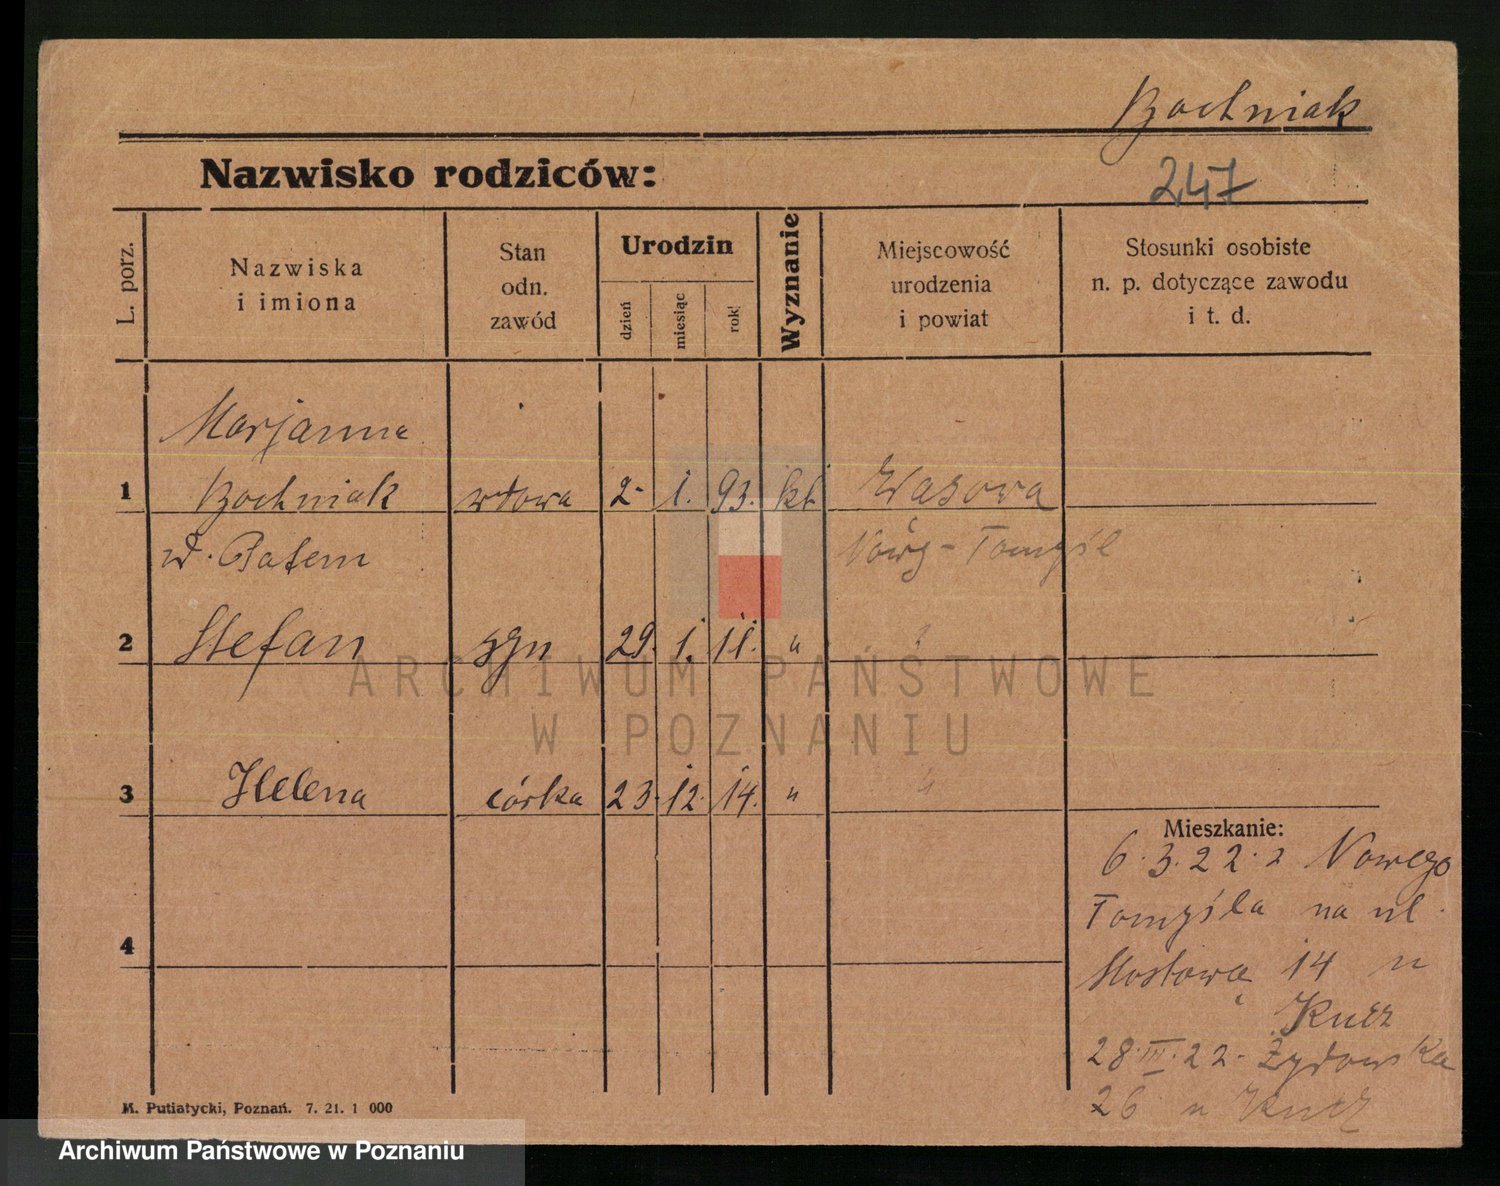 Bochniak
Nazwisko rodziców:
247
L. porz.
Nazwiska
i imiona
Stan
odn.
zawód
Urodzin
dzień
miesiąc
rok!
Wyznanie
Miejscowość
urodzenia
i powiat
Stosunki osobiste
n. p. dotyczące zawodu
i t. d.
Marjanna
1 Bochniak wdowa 2. 1. 93. kt. Wąsowa
Nowy-Tomyśl
2 Stefan syn 29. 1. 11. "
3 Helena córka 23. 12. 14. " "
Mieszkanie:
6.3.22. z Nowego
Tomyśla na ul.
Mostową 14 u
Kucz
4
28.III.22. Żydowska
26 u Kucz
M. Putiatycki, Poznań. 7. 21. 1 000
ARCHIWUM PAŃSTWOWE
W POZNANIU
Archiwum Państwowe w Poznaniu